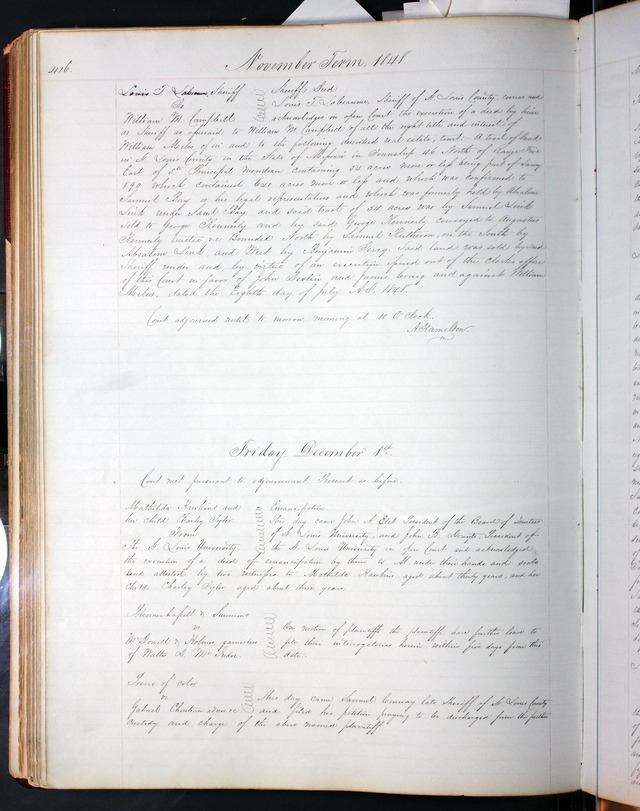 416.
November Term, 1848
Louis T. Labeaume, Sheriff
Sheriffs Deed
To
William M Campbell
Louis T. Labeaume, Sheriff of St Louis County, comes and
acknowledges in open Court the execution of a deed by him
as Sheriff as aforesaid to William M Campbell of all the right title and interest of
William Miles of in and to the following described real estate, towit: A tract of land
in St Louis County in the State of Missouri in Township 46 North of Range Five
East of 5th Principal meridian containing 54 acres more or less being part of Survey
199 which contained 640 acres more or less and which was confirmed to
Samuel Bay or his legal representatives and which was formerly held by Absalom
Link under Saml Bay and said tract of 54 acres was by Samuel Link
sold to George Kennerly and by said George Kennerly conveyed to Augustus
Kennerly trustee &c Bounded North by Samuel on the South by
Absalom Link, and West by Benjamin said land was sold by said
Sheriff under and by virtue of an execution issued out of the clerks office
of this Court in favor of John and James and against William
Miles, dated the Eighth day of July A.D. 1848.
Court adjourned until to morrow morning at 10 O'clock.
A Hamilton
Friday December 1st.
Court met pursuant to adjournment Present as before.
Mathilda Hawkins and
her child Charley Tyler
From
The St Louis University
Emancipation
This day came John A. Elet President of the Board of Trustees
of St Louis University, and John B. Druyts, President of
the St Louis University in open Court and acknowledged
the execution of a deed of emancipation by them to M. under their hands and seals
and attested by two witnesses to Mathilda Hawkins aged about thirty years, and her
child Charley Tyler aged about three years
& Simmons
vs
McDowell & Holmes, garnishees
of Walter
On motion of plaintiffs the plaintiffs have further leave to
file their interrogatories herein within five days from this
date.
of color
vs
Gabriel Chouteau adm &c
This day came Samuel Conway late Sheriff of St Louis County
and files his petition praying to be discharged from the further
custody and charge of the above named plaintiff